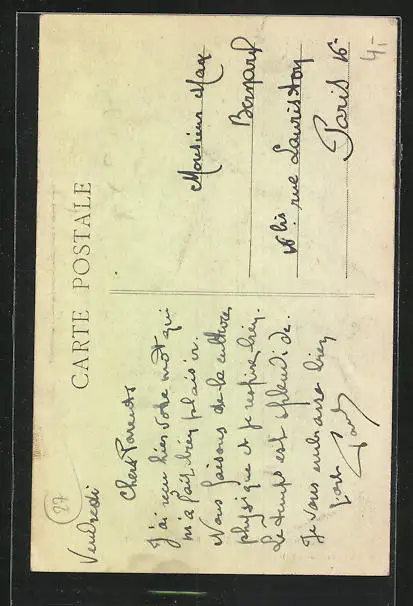 CARTE POSTALE
27
Vendredi
Chers Parents
J'ai reçu hier votre mot qui
m'a fait bien plaisir.
Nous faisons de la culture
physique et je respire bien.
Le temps est splendide.
Je vous embrasse bien
Monsieur Max
Bernard
16 bis rue Lauriston
Paris 16e
4,-